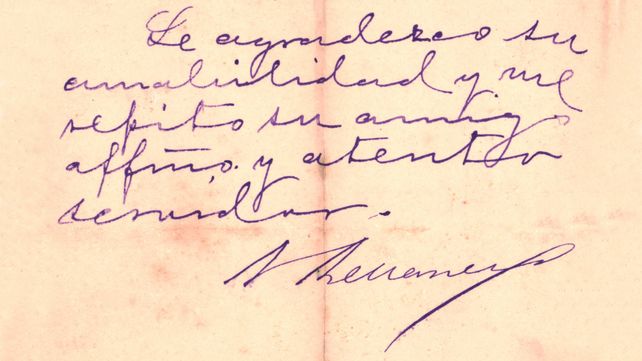 Le agradezco su
amabilidad y me
repito su amigo
affmo. y atento
servidor.